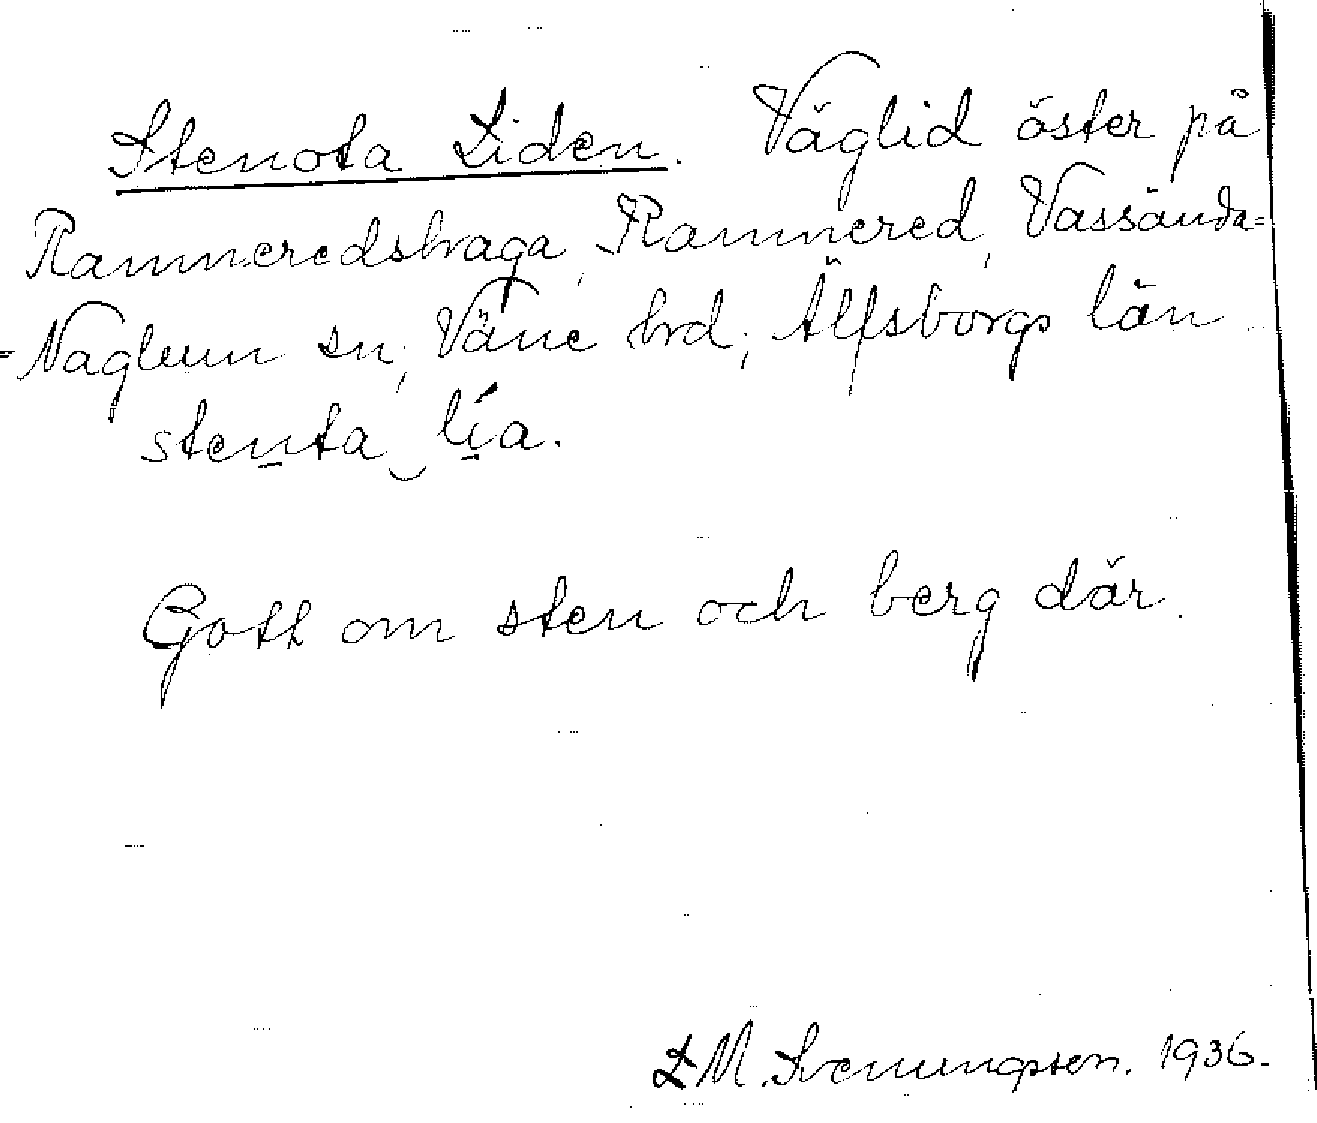 Stenota Liden. Väglid öster på
Ramneredshaga, Ramnered, Vassända=
=Naglum sn, Väne hrd, Älfsborgs län.
stenta lía.
Gott om sten och berg där.
L M. Svenungsson. 1936.